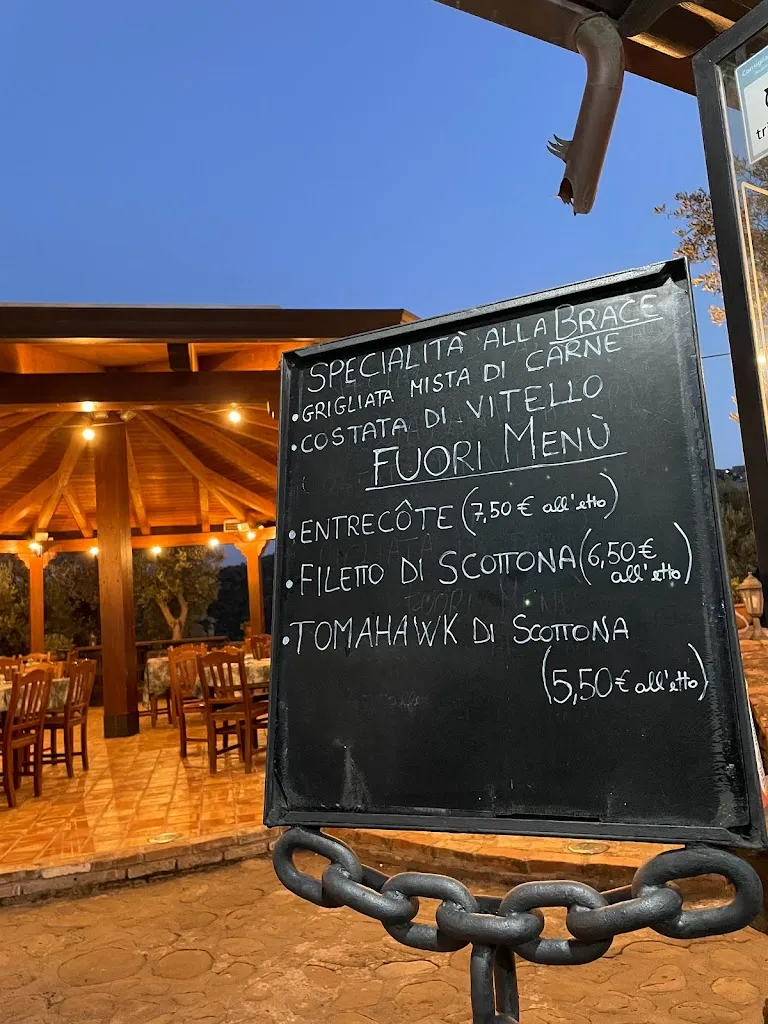 SPECIALITÀ ALLA BRACE
• GRIGLIATA MISTA DI CARNE
• COSTATA DI VITELLO
FUORI MENÙ
• ENTRECÔTE (7,50 € all'etto)
• FILETTO DI SCOTTONA (6,50 €
all'etto)
• TOMAHAWK DI SCOTTONA
(5,50 € all'etto)